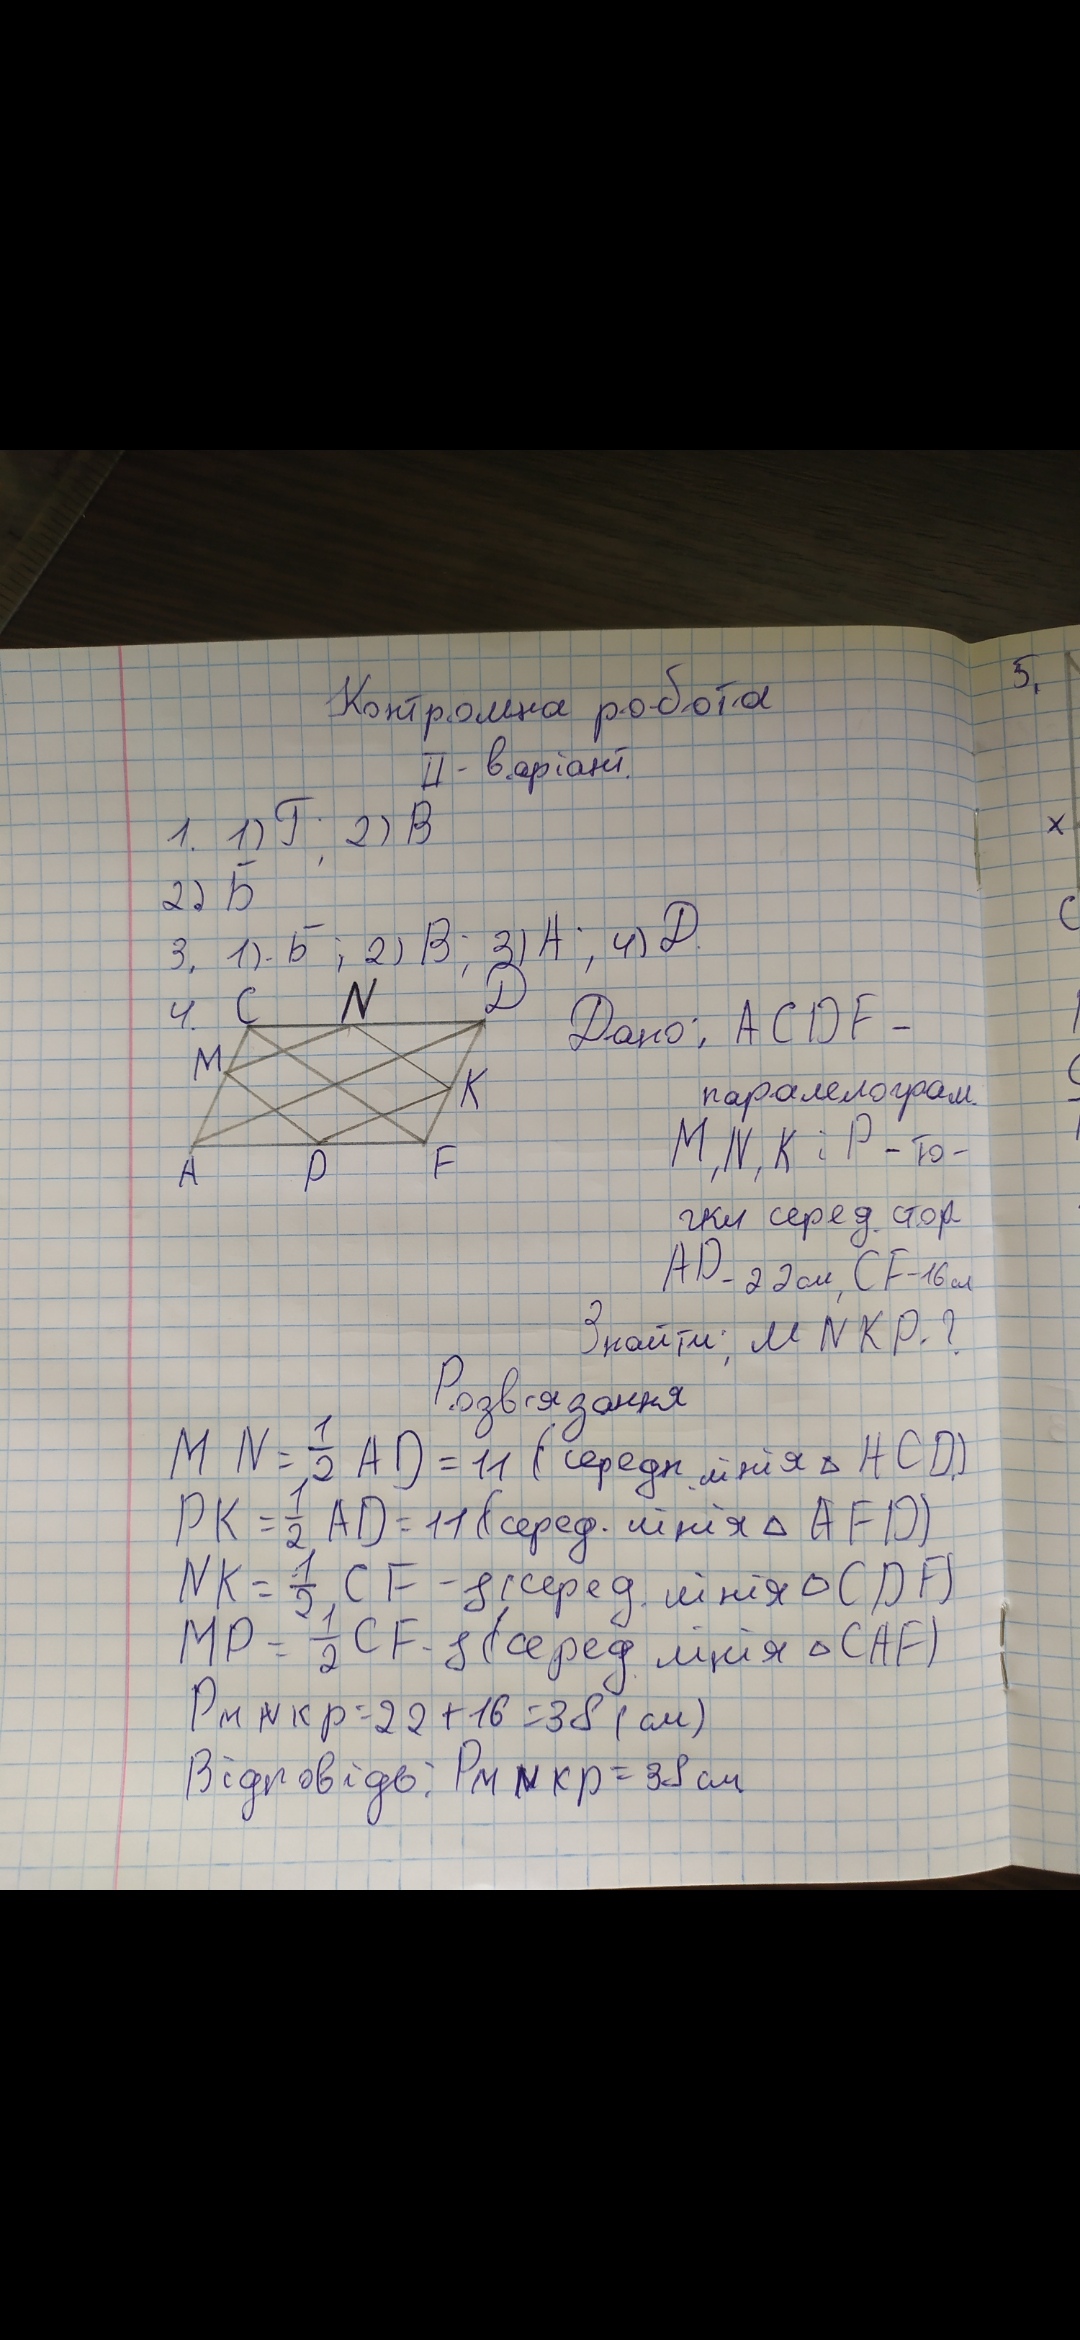 Контрольна робота
II - варіант.
1. 1) Г; 2) В
2) Б
3. 1) Б; 2) В; 3) А; 4) Д.
4. C N D
M
K
A P F
Дано: ACDF -
паралелограм.
M, N, K і P - то-
чки серед. стор
AD - 22 см, CF - 16 см
Знайти: MNKP-?
Розв'язання
MN = 1/2 AD = 11 (середн. лінія △ ACD)
PK = 1/2 AD = 11 (серед. лінія △ AFD)
NK = 1/2 CF - 8 (серед. лінія △ CDF)
MP = 1/2 CF - 8 (серед. лінія △ CAF)
Pмnкр = 22 + 16 = 38 (см)
Відповідь: Pмnкр = 38 см
5.
x
C